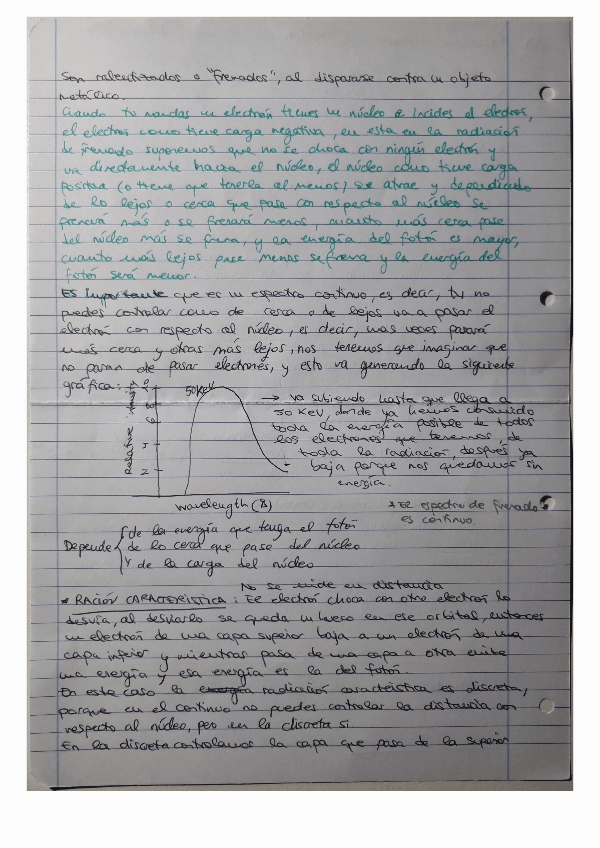 Son ralentizados o "frenados", al dispararse contra un objeto
metálico.
Cuando tu mandas un electrón tienes un núcleo e incides el electrón,
el electrón como tiene carga negativa, en esta en la radiación
de frenado suponemos que no se choca con ningún electrón y
va directamente hacia el núcleo, el núcleo como tiene carga
positiva (o tiene que tenerla al menos) se atrae y dependiendo
de lo lejos o cerca que pase con respecto al núcleo se
frenará más o se frenará menos, cuanto más cerca pase
del núcleo más se frena, y la energía del fotón es mayor,
cuanto más lejos pase menos se frena y la energía del
fotón será menor.
Es importante que es un espectro continuo, es decir, tu no
puedes controlar como de cerca o de lejos va a pasar el
electrón con respecto al núcleo, es decir, unas veces pasará
más cerca y otras más lejos, nos tenemos que imaginar que
no paran de pasar electrones, y esto va generando la siguiente
gráfica:
Relative
50 KeV
2
→ va subiendo hasta que llega a
50 KeV, donde ya hemos consumido
toda la energía posible de todos
los electrones que tenemos, de
toda la radiación, después ya
baja porque nos quedamos sin
energía.
wavelength (Å)
* El espectro de frenado
es continuo.
Depende
de la energía que tenga el fotón
de lo cerca que pase del núcleo
y de la carga del núcleo
No se mide en distancia
* RACIÓN CARACTERISTICA: El electrón choca con otro electrón lo
desvía, al desviarlo se queda un hueco en ese orbital, entonces
un electrón de una capa superior baja a un electrón de una
capa inferior y mientras pasa de una capa a otra emite
una energía y esa energía es la del fotón.
En este caso la energía radiación caracteistica es discreta,
porque en el continuo no puedes controlar la distancia con
respecto al núcleo, pero en la discreta si.
En la discreta controlamos la capa que pasa de la superior